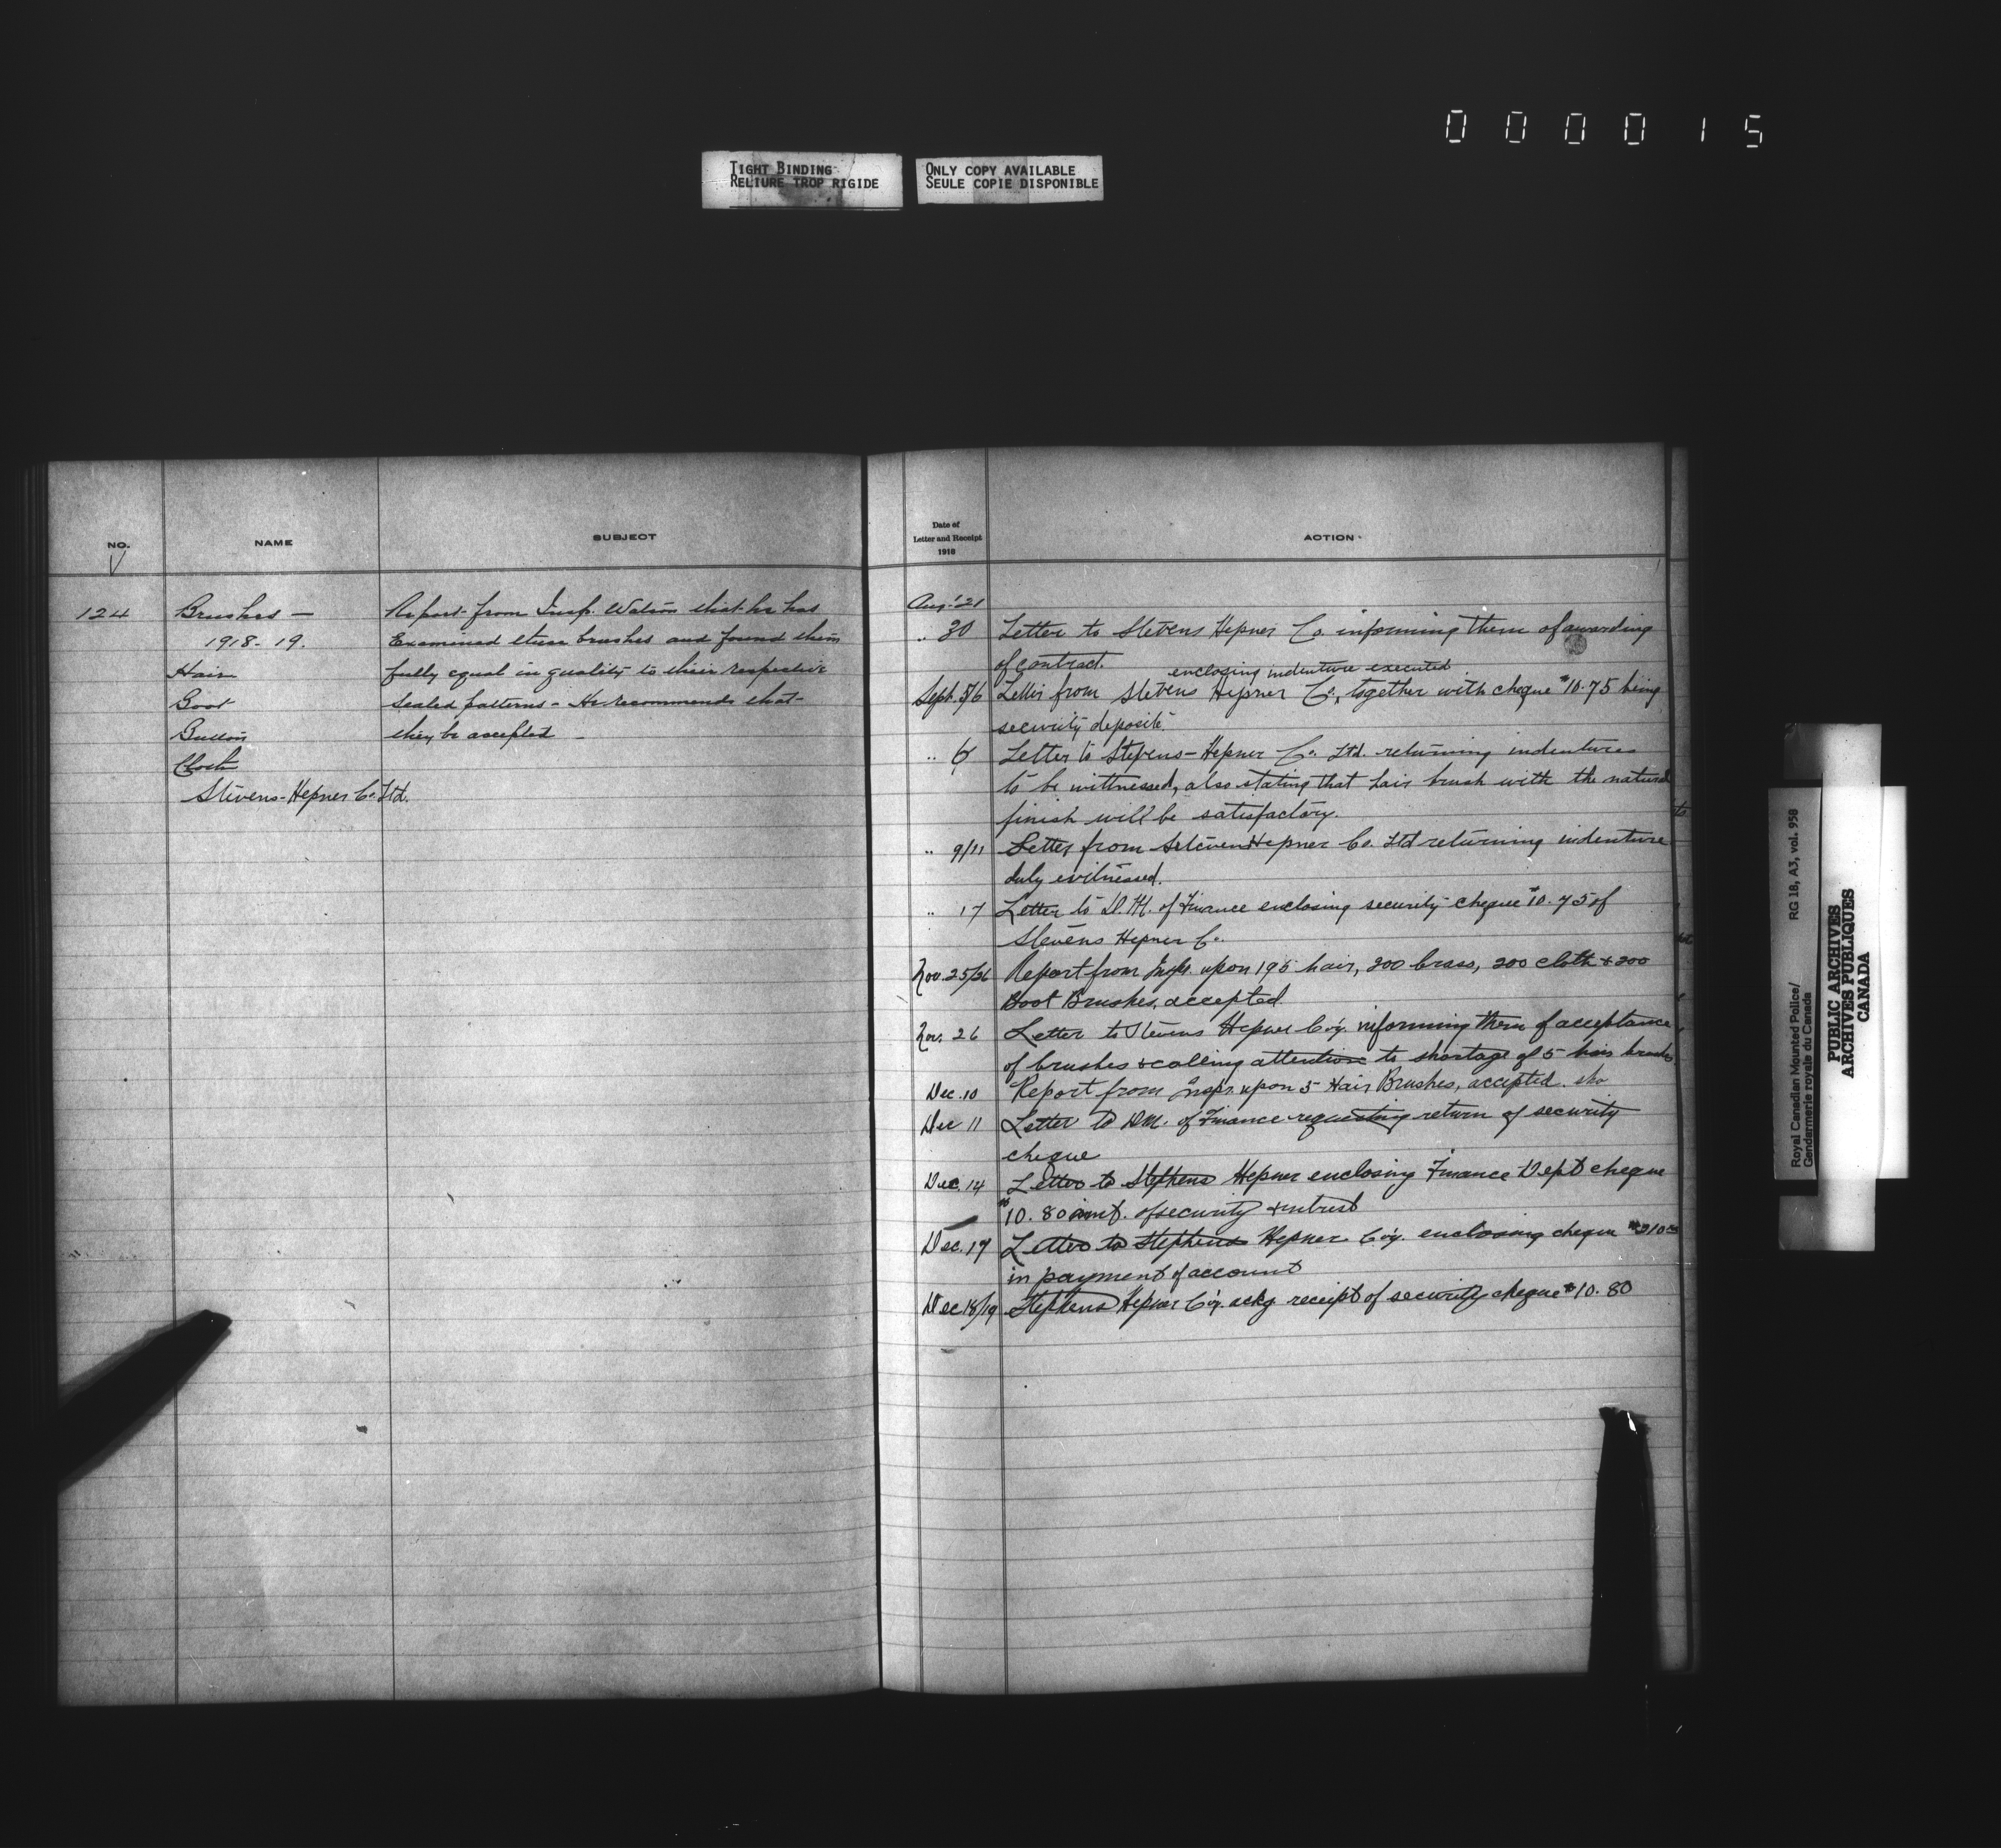 0 0 0 0 1 5
TIGHT BINDING
RELIURE TROP RIGIDE
ONLY COPY AVAILABLE
SEULE COPIE DISPONIBLE
NO.
NAME
SUBJECT
124
Brushes —
1918-19.
Hair
Boot
Button
Cloth
Stevens-Hepner Co. Ltd.
Report from Insp. Watson that he has
Examined these brushes and found them
fully equal in quality to their respective
sealed patterns - He recommends that
they be accepted -
Date of
Letter and Receipt
1918
ACTION
Aug. 21
" 30 Letter to Stevens Hepner Co. informing them of awarding
of contract.
enclosing indenture executed
Sept. 5/6 Letter from Stevens Hepner Co., together with cheque $10.75 being
security deposit.
" 6 Letter to Stevens-Hepner Co. Ltd. returning indentures
to be wittnessed, also stating that hair brush with the natural
finish will be satisfactory.
" 9/11 Letter from Stevens Hepner Co. Ltd returning indenture
duly witnessed.
" 17 Letter to D.M. of Finance enclosing security cheque $10.75 of
Stevens Hepner Co.
Nov. 25/26 Report from Inspr. upon 195 hair, 200 brass, 200 cloth & 200
Boot Brushes, accepted
Nov. 26 Letter to Stevens Hepner Co'y. informing them of acceptance
of brushes & calling attention to shortage of 5 hair brushes
Dec. 10 Report from Inspr. upon 5 Hair Brushes, accepted.
Dec 11 Letter to DM. of Finance requesting return of security
cheque
Dec. 14 Letter to Stephens Hepner enclosing Finance Dept cheque
$10.80 amt. of security & intrest
Dec. 17 Letter to Stephens Hepner Co'y. enclosing cheque
in payment of account
Dec 18/19 Stephens Hepner Co'y. ackg receipt of security cheque $10.80
to
Royal Canadian Mounted Police/ RG 18, A3, vol. 958
Gendarmerie royale du Canada
PUBLIC ARCHIVES
ARCHIVES PUBLIQUES
CANADA